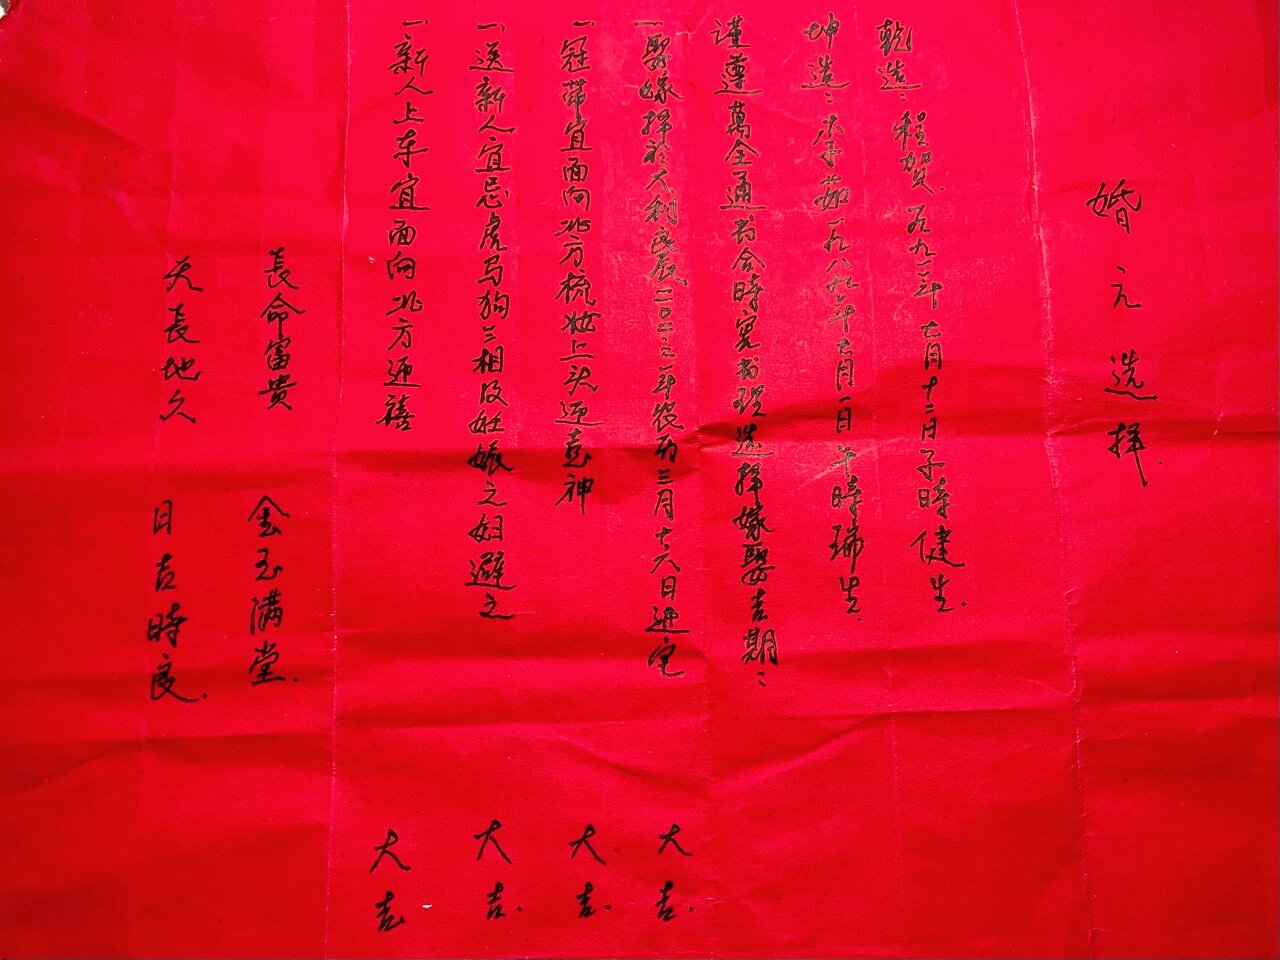 婚元选择.
乾造: 程贺. 一九九二年七月十二日子時健生.
坤造: 李茹一九八九年七月一日午時瑞生.
谨遵萬全通书合時宪书理选择嫁娶吉期:
一.娶嫁择於大利良辰二〇二二年农历三月十六日进宅 大吉.
一.冠带宜面向北方梳妆上头迎喜神 大吉.
一.送新人宜忌虎马狗三相及妊娠之妇避之 大吉.
一.新人上车宜面向北方迎禧 大吉
長命富贵 金玉满堂.
天長地久 日吉時良.